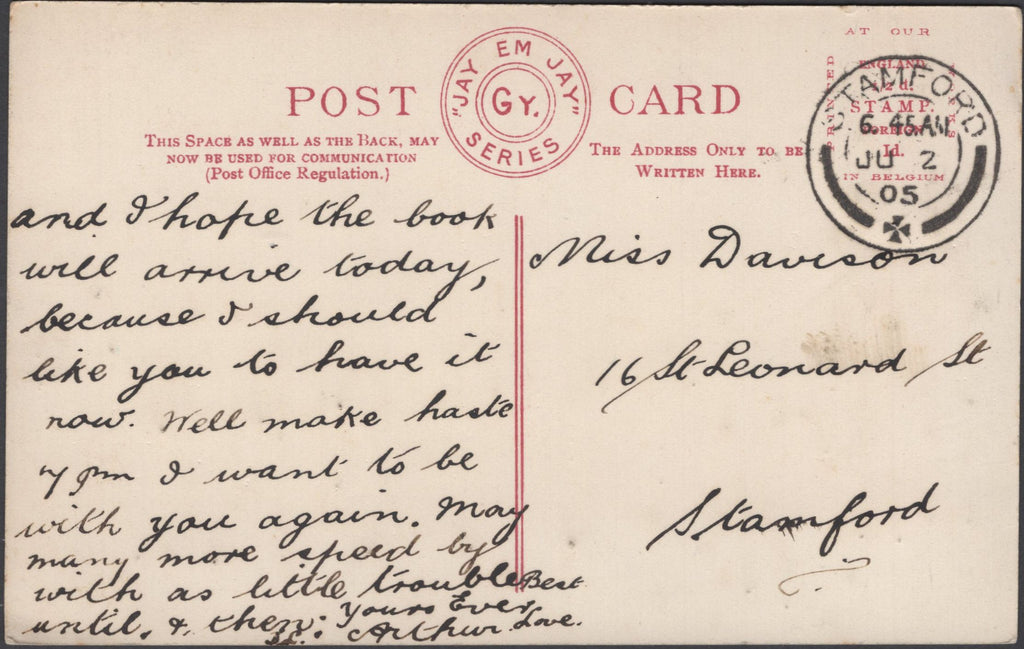 POST CARD
"JAY EM JAY" SERIES
GY.
THIS SPACE AS WELL AS THE BACK, MAY
NOW BE USED FOR COMMUNICATION
(Post Office Regulation.)
THE ADDRESS ONLY TO BE
WRITTEN HERE.
AT OUR
PRINTED
ENGLAND
½d.
STAMP.
FOREIGN
1d.
IN BELGIUM
STAMFORD
6.45AM
JU 2
05
and I hope the book
will arrive today,
because I should
like you to have it
now. Well make haste
7 pm I want to be
with you again. May
many more speed by
with as little trouble
until, & then:
Yours Ever
Arthur
Best
Love.
Miss Davison
16 St Leonard St
Stamford